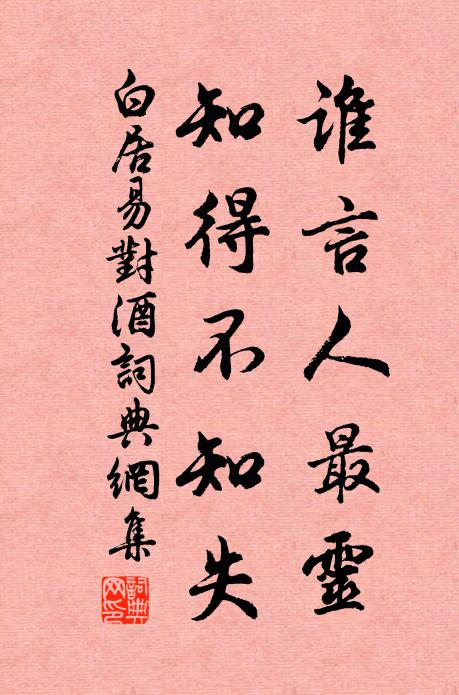 誰言人最靈
知得不知失
白居易對酒詞典網集
詞典
网印